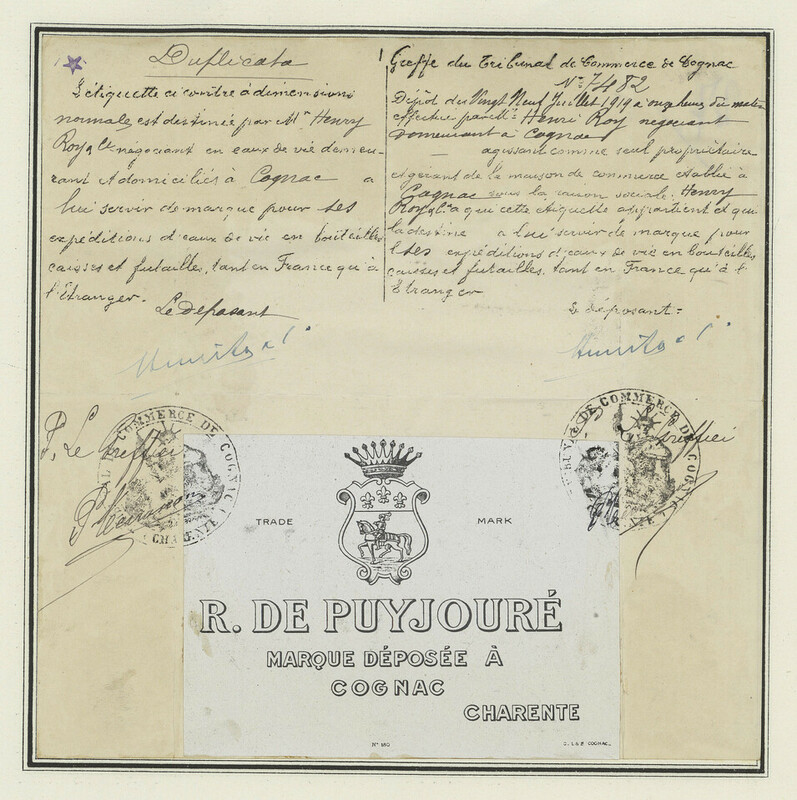 Duplicata
L'étiquette ci contre à dimensions
normale est destinée par Mr Henry
Roy & Cie négociant en eaux de vie demeu-
rant et domiciliés à Cognac a
lui servir de marque pour ses
expéditions d'eaux de vie en bouteilles,
caisses et futailles, tant en France qu'à
l'Étranger.
Le déposant
Greffe du Tribunal de Commerce de Cognac
No 7482
Dépôt du Vingt Neuf Juillet 1919 à onze heures du matin
effectué par Mr Henri Roy négociant
demeurant à Cognac
agissant comme seul propriétaire
et gérant de la maison de commerce établie à
Cognac sous la raison sociale: Henry
Roy & Cie a qui cette étiquette appartient et qui
la destine a lui servir de marque pour
ses expéditions d'eaux de vie en bouteilles
caisses et futailles, tant en France qu'à l'
Étranger
Le déposant =
P. Le Greffier
COMMERCE DE COGNAC
CHARENTE
DE COMMERCE DE COGNAC
Greffier
TRADE MARK
R. DE PUYJOURÉ
MARQUE DÉPOSÉE À
COGNAC
CHARENTE
COGNAC.